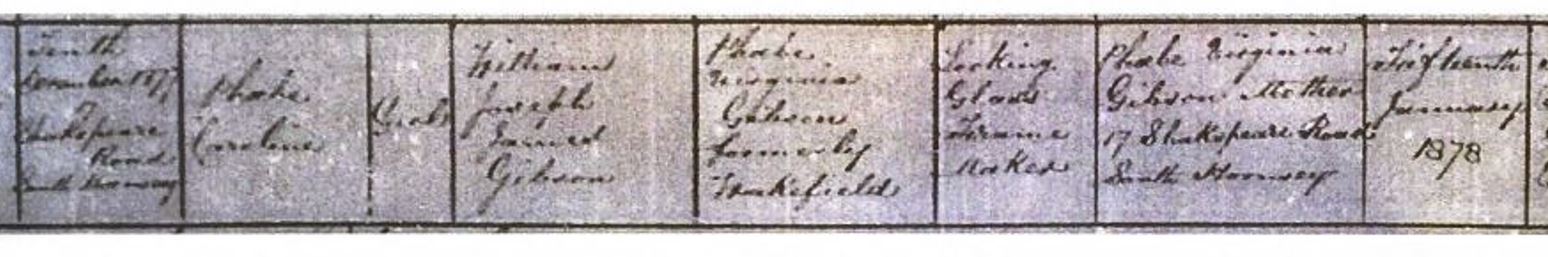 Tenth
December 1877
Shakspeare
Road
South Hornsey
Phœbe
Caroline
Girl
William
Joseph
James
Gibson
Phœbe
Virginia
Gibson
formerly
Wakefield
Looking
Glass
Frame
Maker
Phœbe Virginia
Gibson Mother
17 Shakspeare Road
South Hornsey
Fifteenth
January
1878